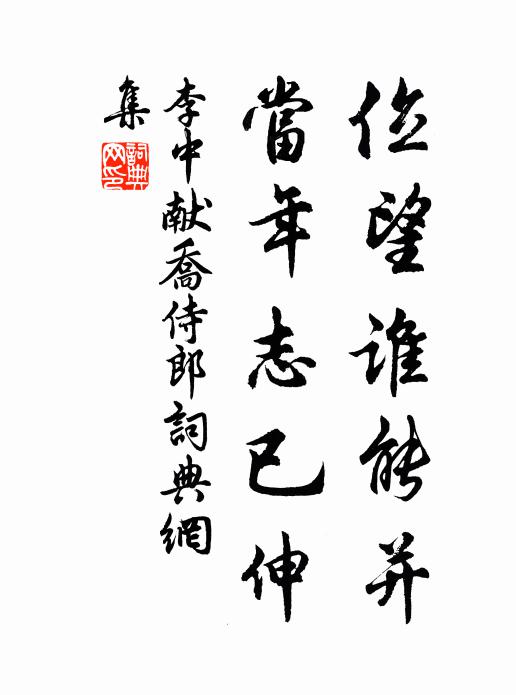 位望谁能并
當年志已伸
李中献喬侍郎詞典網
集
詞典网印